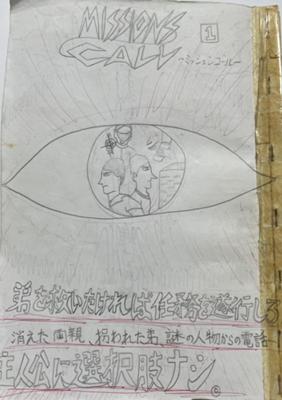 MISSIONS
CALL
1
〜ミッションコール〜
弟を救いたければ任務を遂行しろ
消えた両親、拐われた弟 謎の人物からの電話…
主人公に選択肢ナシ。